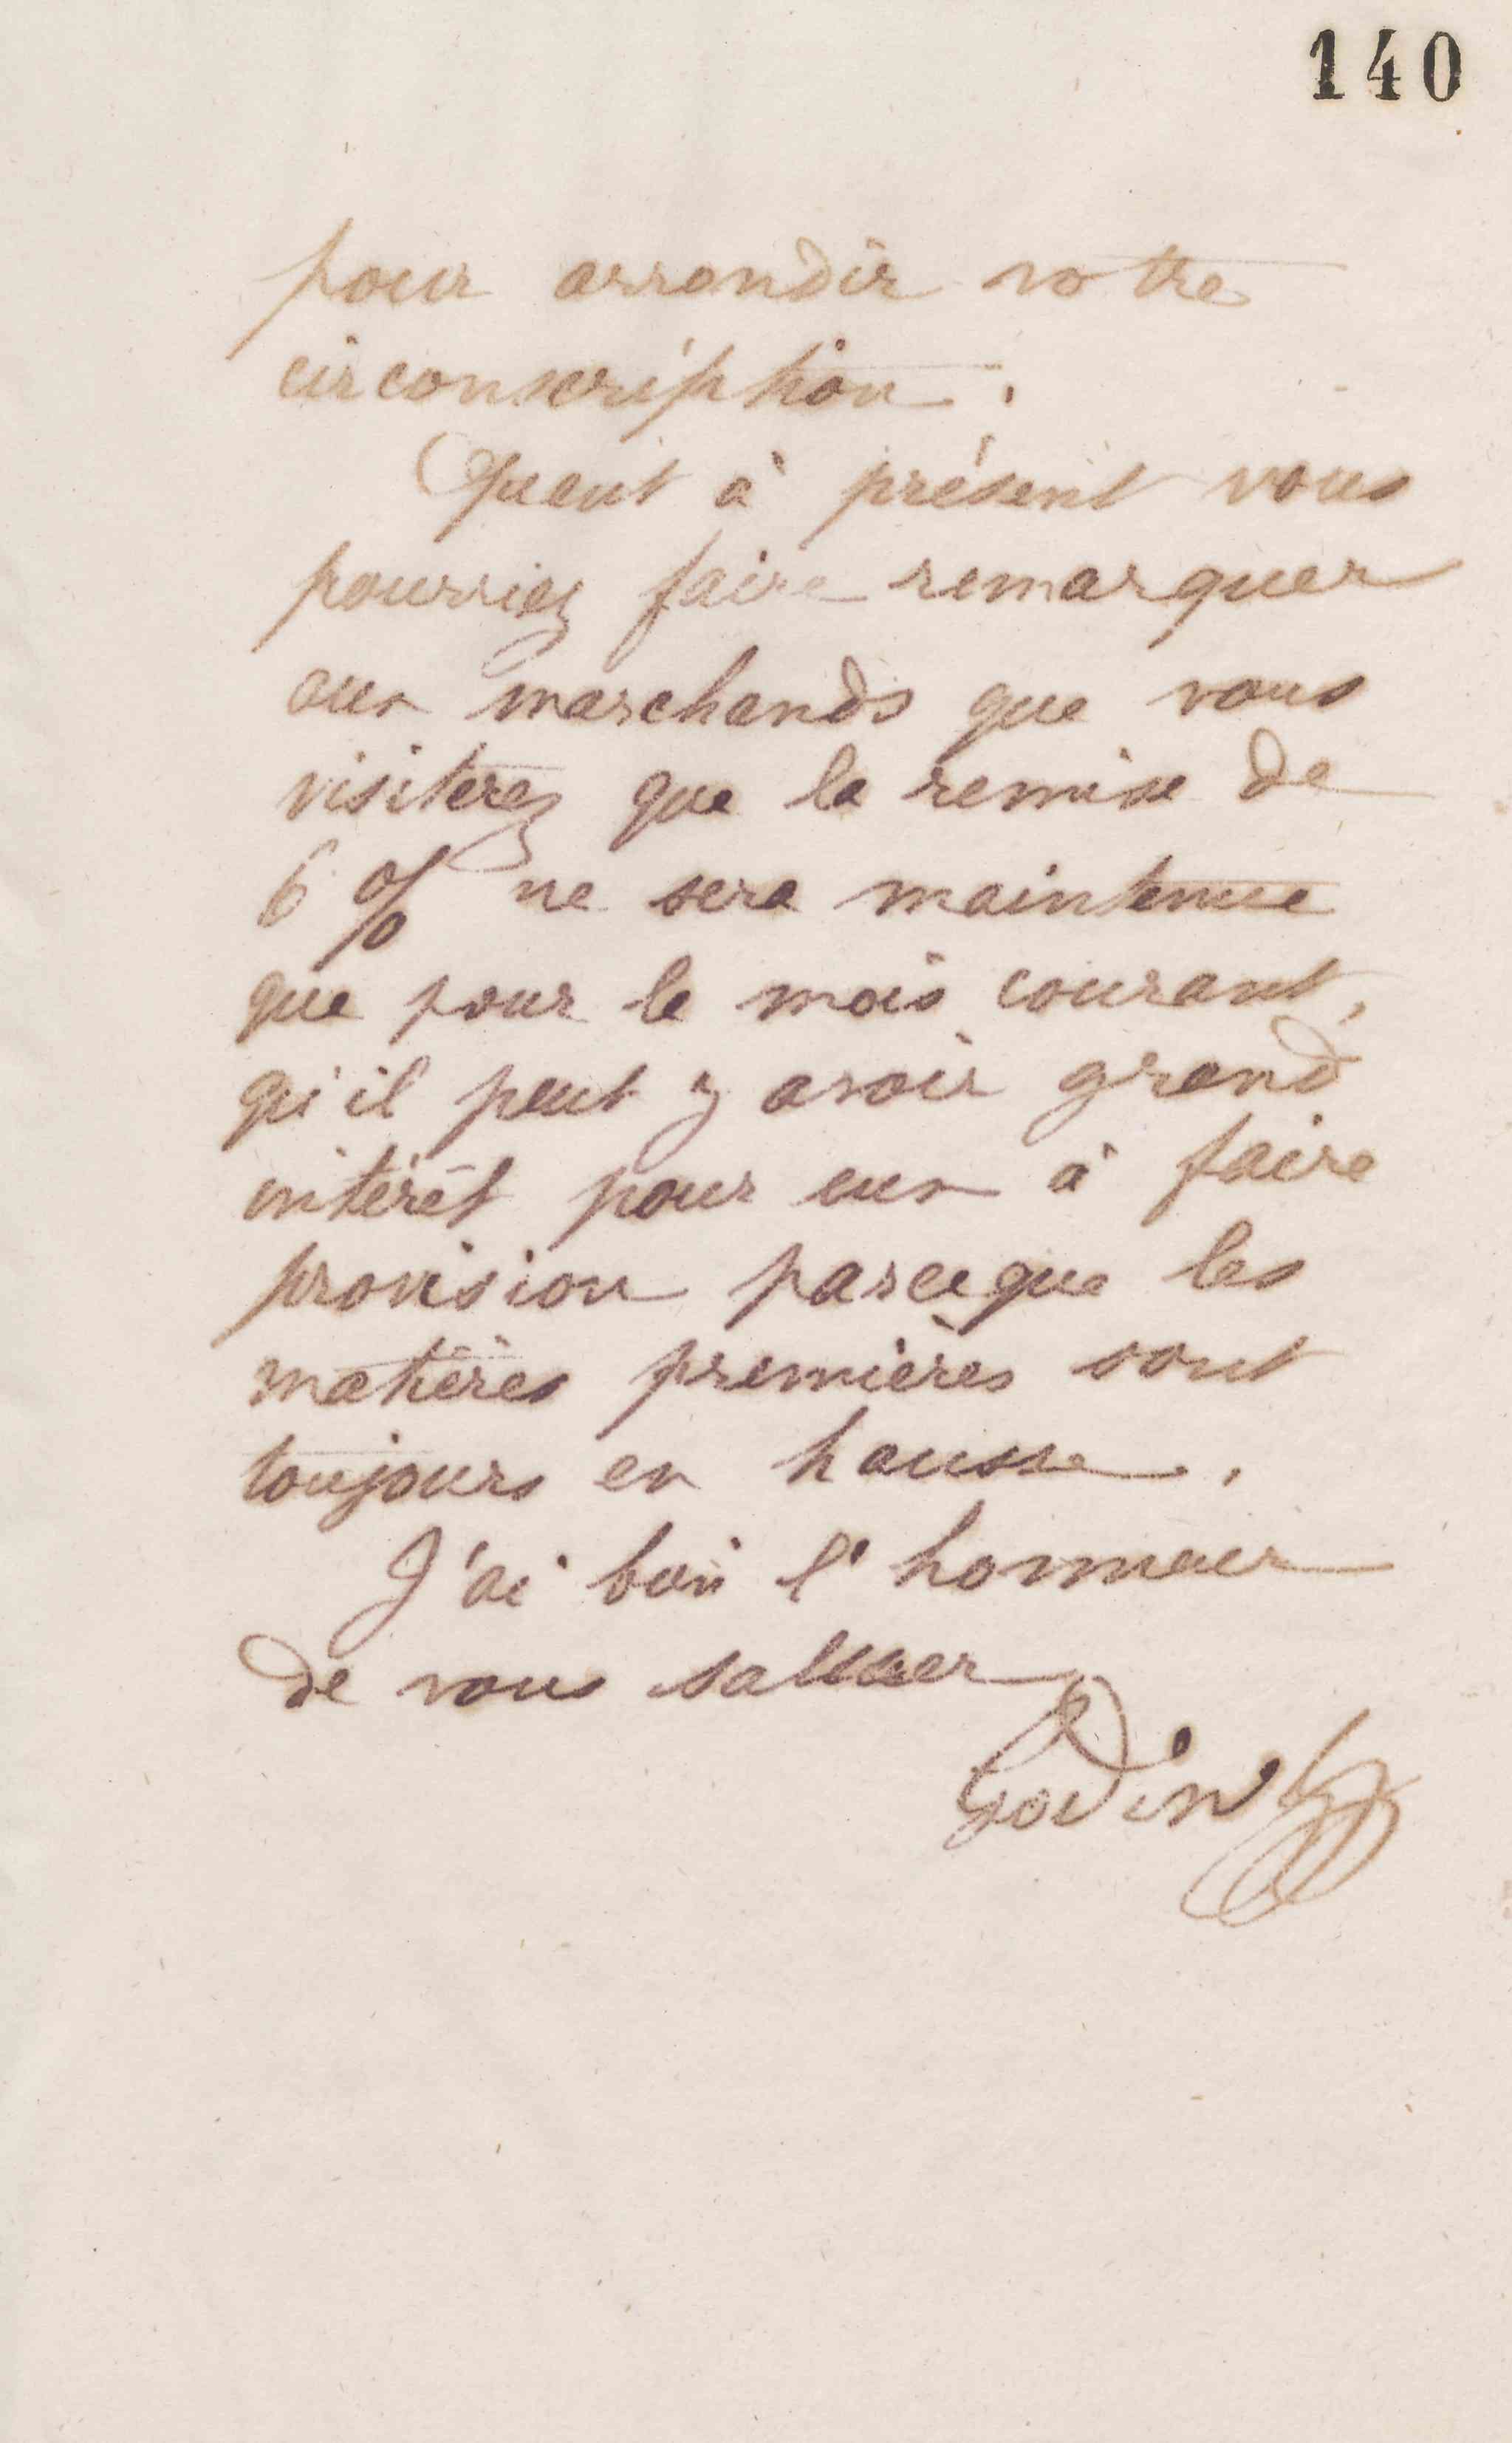 140
pour arrondir votre
circonscription.
Quant à présent vous
pourriez faire remarquer
aux marchands que vous
visiterez que la remise de
6 % ne sera maintenue
que pour le mois courant,
qu'il peut y avoir grand
intérêt pour eux à faire
provision parceque les
matières premières sont
toujours en hausse.
J'ai bien l'honneur
de vous saluer
Godin